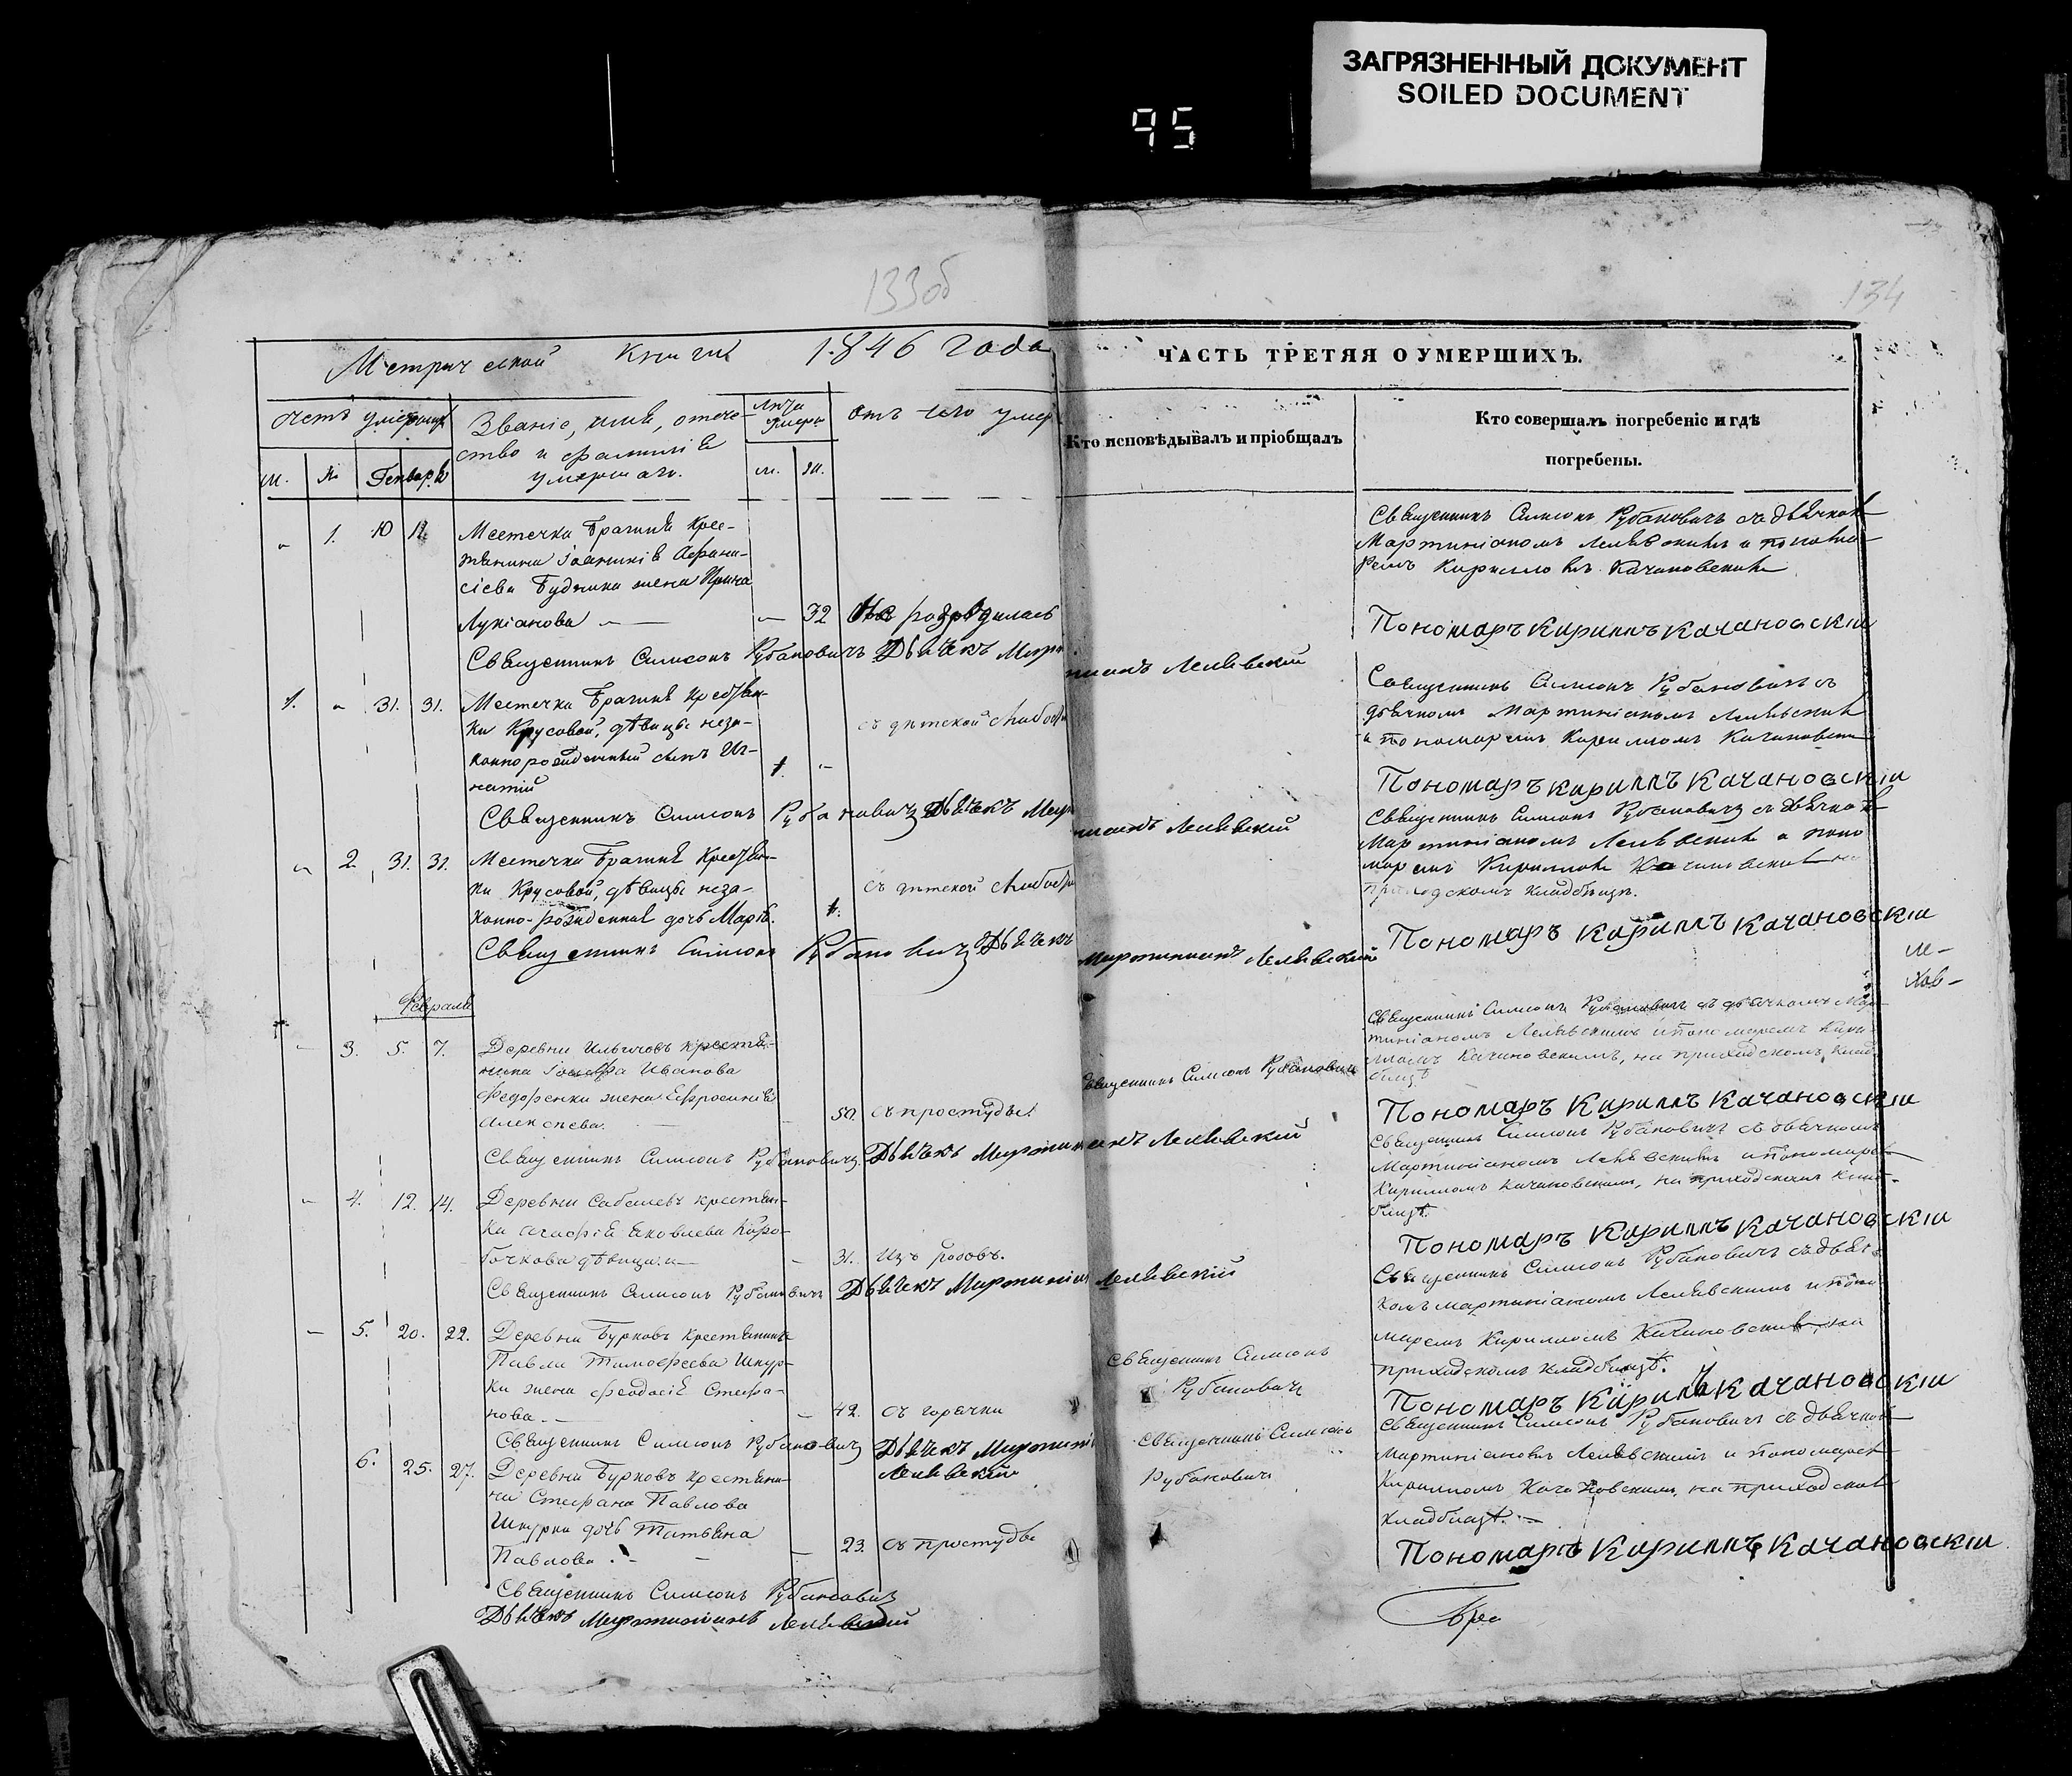 ЗАГРЯЗНЕННЫЙ ДОКУМЕНТ
SOILED DOCUMENT
95
133об
134
Метрической Книги 1846 года
ЧАСТЬ ТРЕТЯЯ О УМЕРШИХЪ.
Звание, имя, отече-
ство и фамилія
умершаго.
м. ж.
отъ чего умер
Кто исповѣдывалъ и пріобщалъ
Кто совершалъ погребеніе и гдѣ
погребены.
1. 10 12.
Местечка Брагиня крес-
тьянина Іоанникія Афана-
сіева Будника жена Ирина
Лукіанова — 32
Священникъ Симеонъ Рубановичъ Дьячекъ Марти
ніанъ Лелявскій
Священникъ Симеонъ Рубановичъ съ дьячкомъ
Мартиніаномъ Лелявскимъ и понома-
ремъ Кирилломъ Качановскимъ
Пономаръ Кириллъ Качановскіи
1. 31. 31.
Местечка Брагиня крестьян-
ки Крусовой, дѣвицы неза-
коннорожденный сынъ Иг-
натій 1. съ дѣтской слабости
Священникъ Симеонъ Рубановичъ Дьячекъ Марти
ніанъ Лелявскій
Священникъ Симеонъ Рубановичъ съ
дьячкомъ Мартиніаномъ Лелявскимъ
и пономаремъ Кирилломъ Качановским
Пономаръ Кириллъ Качановскіи
2. 31. 31.
Местечка Брагиня крестьян-
ки Крусовой, дѣвицы неза-
конно-рожденная дочь Марія. 1. съ дѣтской слабости
Священникъ Симеонъ Рубановичъ Дьячекъ
Мартиніанъ Лелявскій
Священникъ Симеонъ Рубановичъ съ дьячкомъ
Мартиніаномъ Лелявскимъ и поно
маремъ Кирилломъ Качановскимъ на
приходскомъ кладбищѣ.
Пономаръ Кириллъ Качановскіи
Февраля
3. 5. 7.
Деревни Ильичовъ крестья-
нина Іосифа Иванова
Федоренки жена Ефросинія
Алексѣева. 50. съ простуды.
Священникъ Симеонъ Рубановичъ
Священникъ Симеонъ Рубановичъ Дьячекъ Мартиніанъ Лелявскій
Священникъ Симеонъ Рубановичъ съ дьячкомъ Мар-
тиніаномъ Лелявскимъ и пономаремъ Кири-
лломъ Качановскимъ, на приходскомъ клад-
бищѣ
Пономаръ Кириллъ Качановскіи
4. 12. 14.
Деревни Сабалевъ крестьян-
ка Агафія Яковлева Коро-
бочкова дѣвица 31.
Священникъ Симеонъ Рубановичъ Дьячекъ Мартиніанъ Лелявскій
Священникъ Симеонъ Рубановичъ съ дьячкомъ
Мартиніаномъ Лелявскимъ и пономаремъ
Кирилломъ Качановскимъ, на приходскомъ клад-
бищѣ.
Пономаръ Кириллъ Качановскіи
5. 20. 22.
Деревни Бурковъ крестьянина
Павла Тимофеева Шкур-
ки жена Феодосія Стефа-
нова. — 42. съ горячки
Священникъ Симеонъ
Рубановичъ
Священникъ Симеонъ Рубановичъ Дьячекъ Мартиніанъ
Лелявскій
Священникъ Симеонъ Рубановичъ съ дьяч-
комъ Мартиніаномъ Лелявскимъ и поно
маремъ Кирилломъ Качановскимъ, на
приходскомъ кладбищѣ.
Пономаръ Кириллъ Качановскіи
6. 25. 27.
Деревни Бурковъ крестьяни-
на Стефана Павлова
Шкурки дочь Татьяна
Павлова. — 23. съ простуды
Священникъ Симеонъ
Рубановичъ
Священникъ Симеонъ Рубановичъ
Дьячекъ Мартиніанъ Лелявскій
Священникъ Симеонъ Рубановичъ съ дьячкомъ
Мартиніаномъ Лелявскимъ и пономаремъ
Кирилломъ Качановскимъ, на приходскомъ
кладбищѣ. —
Пономаръ Кириллъ Качановскіи